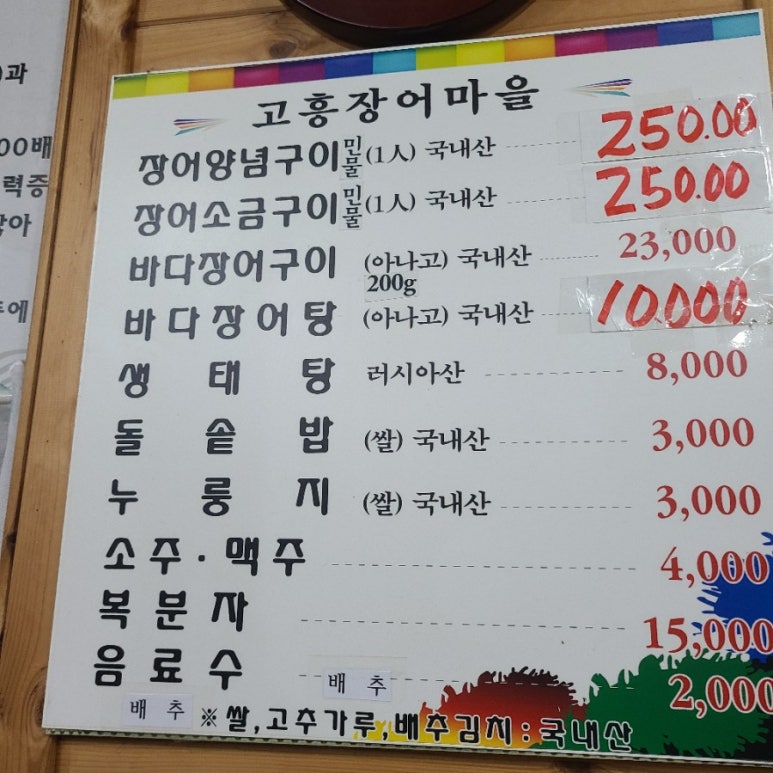 고흥장어마을
장어양념구이 민물 (1人) 국내산 250.00
장어소금구이 민물 (1人) 국내산 250.00
바다장어구이 (아나고) 국내산 200g 23,000
바다장어탕 (아나고) 국내산 10.000
생태탕 러시아산 8,000
돌솥밥 (쌀) 국내산 3,000
누룽지 (쌀) 국내산 3,000
소주·맥주 4,000
복분자 15,000
음료수 2,000
배추
배추
※쌀,고추가루,배추김치:국내산
과
00배
력증
에